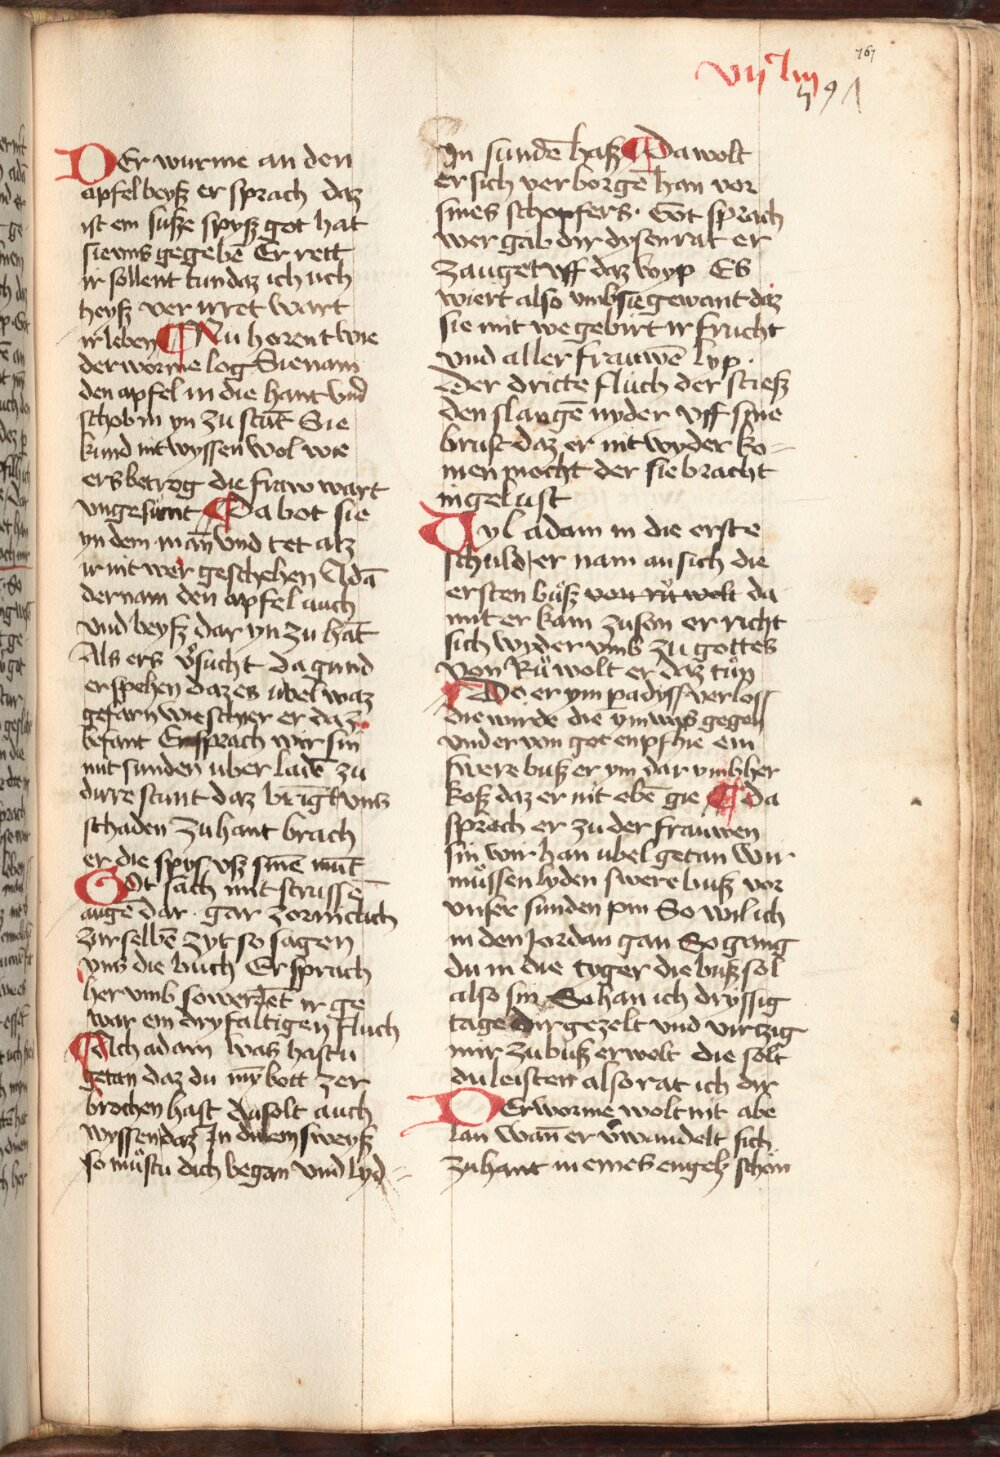 767
vij lm
791
DEr wurme an den
apfel beyß er sprach daz
ist ein suße spyß got hat
sie vns gegebē Er rett
ir sollent tun daz ich uch
heyß ver irret wart
ir leben Nu horent wie
der worme log Sie nam
den apfel in die hant vnd
schob in yn zu stāt Sie
kund nit wyssen wol wie
ers betrog die fraw wart
vngesunt Da bot sie
yn dem mañ vnd tet alz
ir nit wer geschehen Adā
der nam den apfel auch
vnd beyß dar yn zu hāt
Als ers v̓sucht da gund
er spehen daz es ubel waz
gefarn wie schier er daz
befant Er sprach wir sin
mit sunden uber ladē zu
dirre stunt daz bringt vns
schaden zu hant brach
er die spys vß sinē mūt
Got sach mit strussē
augē dar · gar zornclich
zur selbē zyt so sagen
vns die buch Er sprach
her vmb so werdēt ir ge
war ein dryfaltigen fluch
Ach adam was hastu
getan daz du my̅ bott zer
brochen hast du solt auch
wyssen daz In dinem sweyß
so mu̓stu dich began vnd lyd=
In sundē haß Da wolt
er sich verborgē han vor
sines schopfers · Got sprach
wer gab dir dysen rat er
zauget vff daz wyp Es
wiert also vmb sie gewant daz
sie mit we gebirt ir frucht
vnd aller frauwē lyp ·
Der dritte fluch der stieß
den slangē nyder vff sine
brust daz er nit wyder ko=
men mocht der sie bracht
in gelust
Wyl adam in die erste
schuld / er nam an sich die
ersten bu̓ß von ru̓ wolt da
mit er kam zu son er richt
sich wyder vmb zu gottes
von Ru̓ wolt er daz tu̓n
Do er ym padyss verloss
die wirde die ym was gegen
vnder von got enpfhie ein
swere buß er ym dar vmb her
koß daz er nit ebē gie Da
sprach er zu der frauwen
sin wir han ubel getan wir
mu̓ssen lyden swere buß vor
vnser sunden pin So wil ich
in den Jordan gan So gang
du in die tyger die buß sol
also sin So han ich dryssig
tage dir gezelt vnd virtzig
mir zu buß erwelt die solt
du leisten also rat ich dir
Der worme wolt nit abe
lan wañ er v̓wandelt sich
zu hant in eines engelz schon